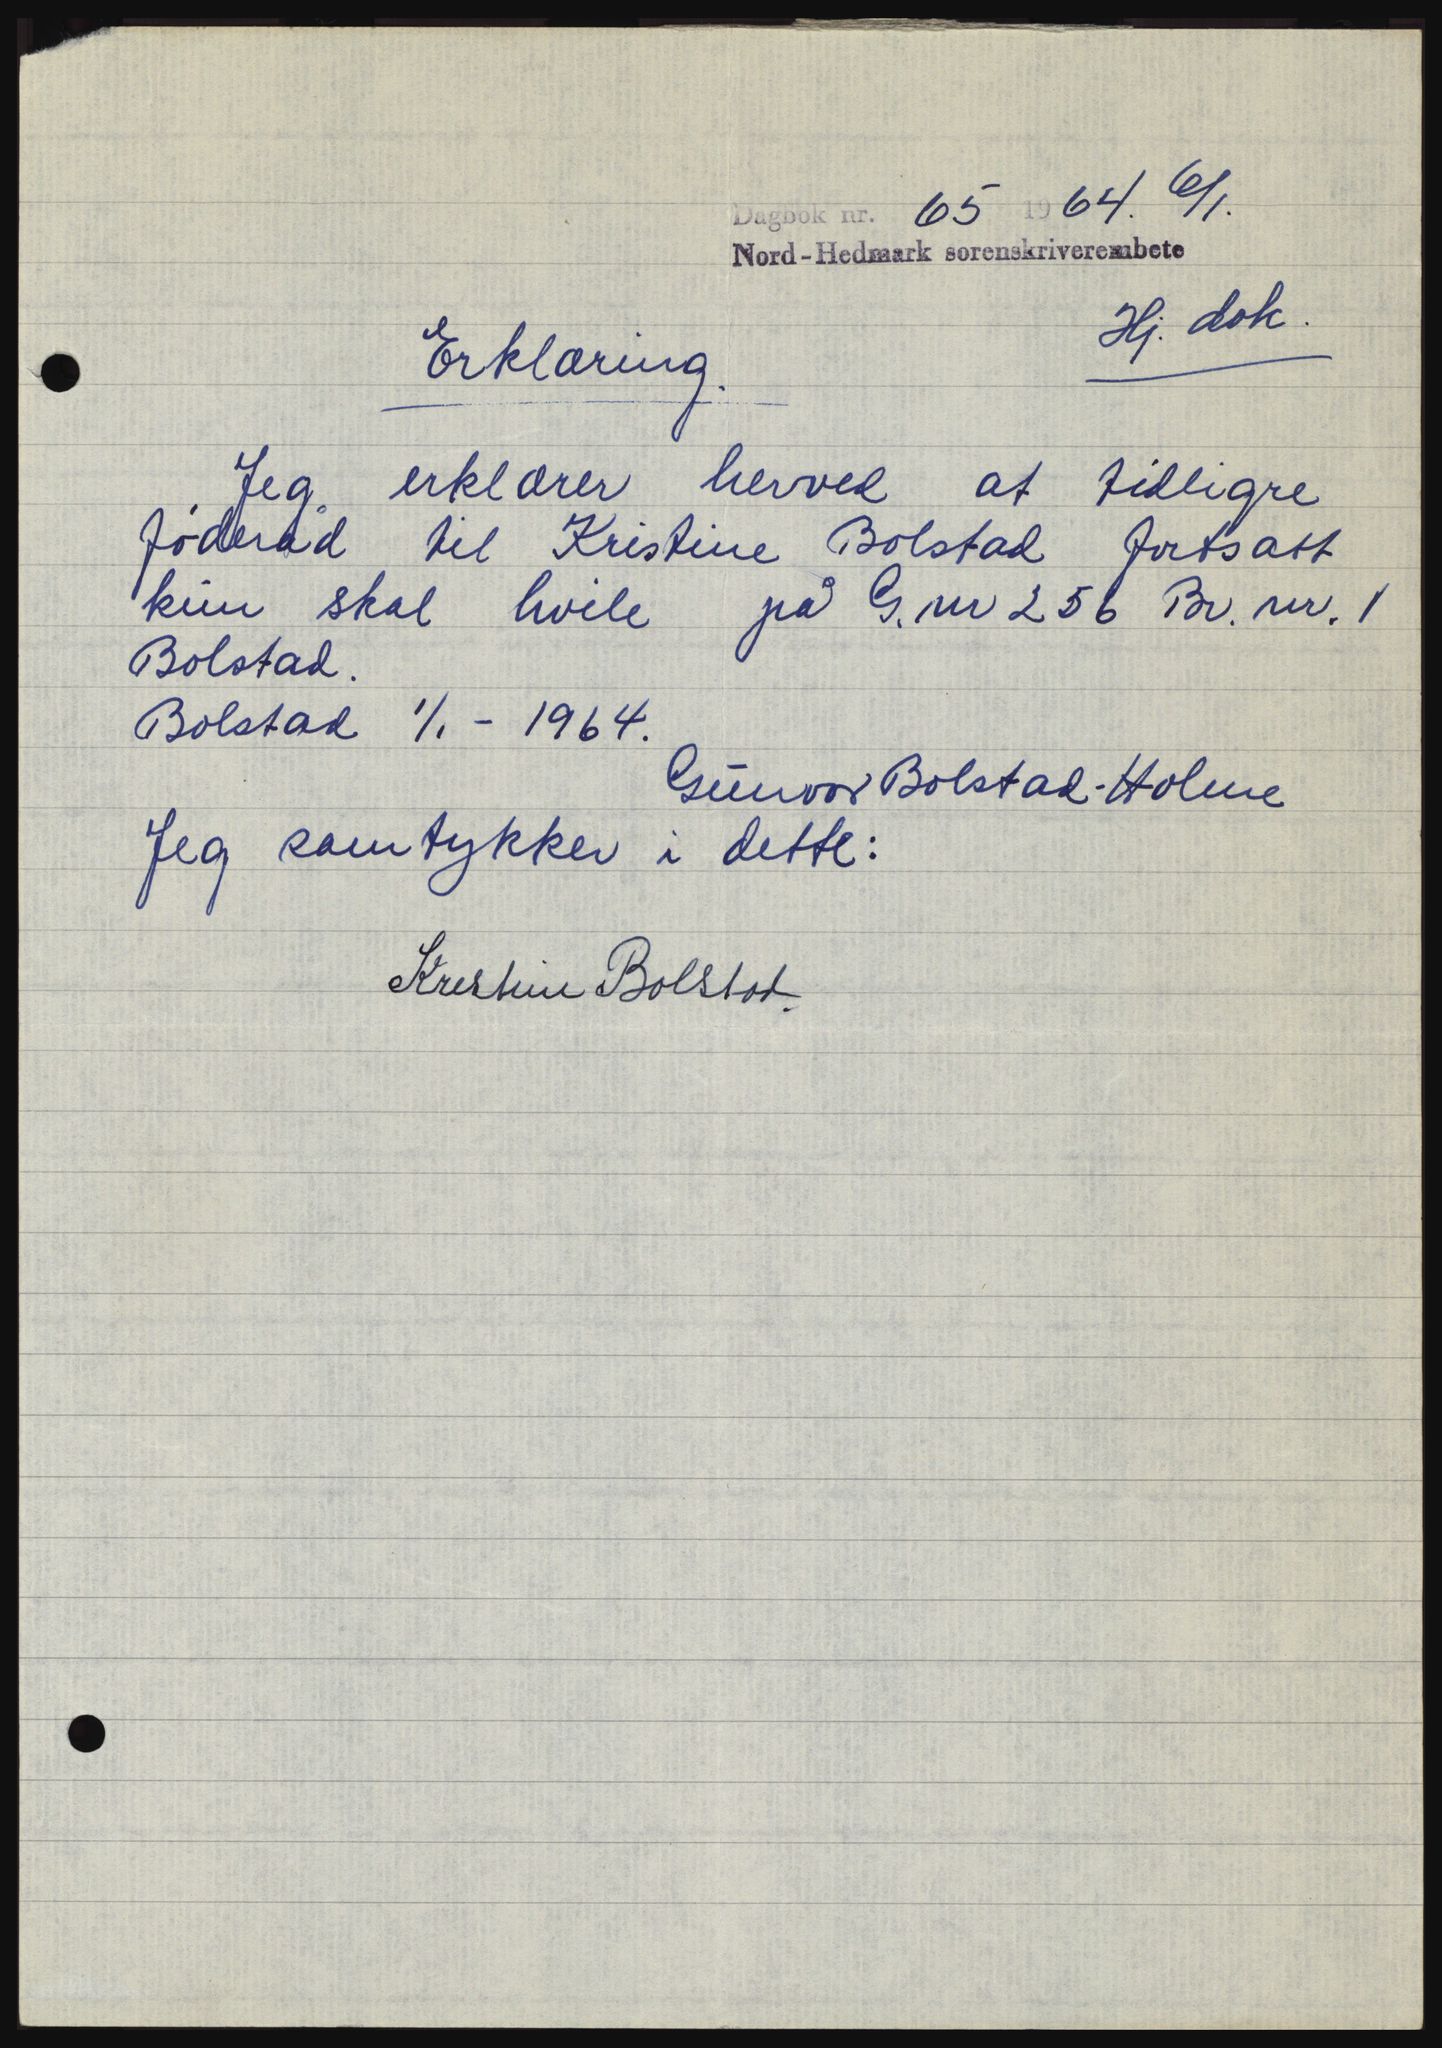 Dagbok nr. 65 1964. 6/1.
Nord-Hedmark sorenskriverembete
Hj. dok.
Erklæring.
Jeg erklærer herved at tidligre
föderåd til Kristine Bolstad fortsatt
kun skal hvile på G.nr 256 Br. nr. 1
Bolstad.
Bolstad 1/1 - 1964.
Gunvor Bolstad-Holme
Jeg samtykker i dette:
Kristine Bolstad.